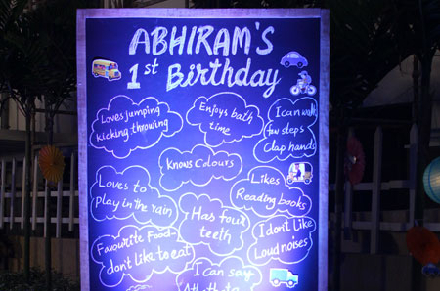 ABHIRAM'S
1st Birthday
Loves jumping
kicking throwing
Enjoys bath
time
I can walk
few steps
Clap hands
Knows Colours
Loves to
play in the rain
Likes
Reading books
Has four
teeth
Favourite Food-
don't like to eat
I don't like
Loud noises
I can say